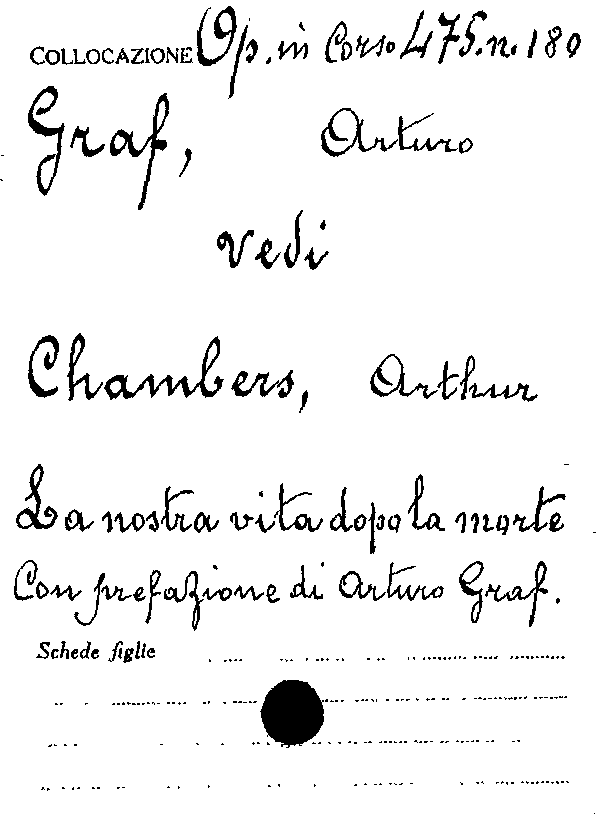 COLLOCAZIONE Op. in Corso 475. n. 180
Graf, Arturo
vedi
Chambers, Arthur
La nostra vita dopo la morte
Con prefazione di Arturo Graf.
Schede figlie